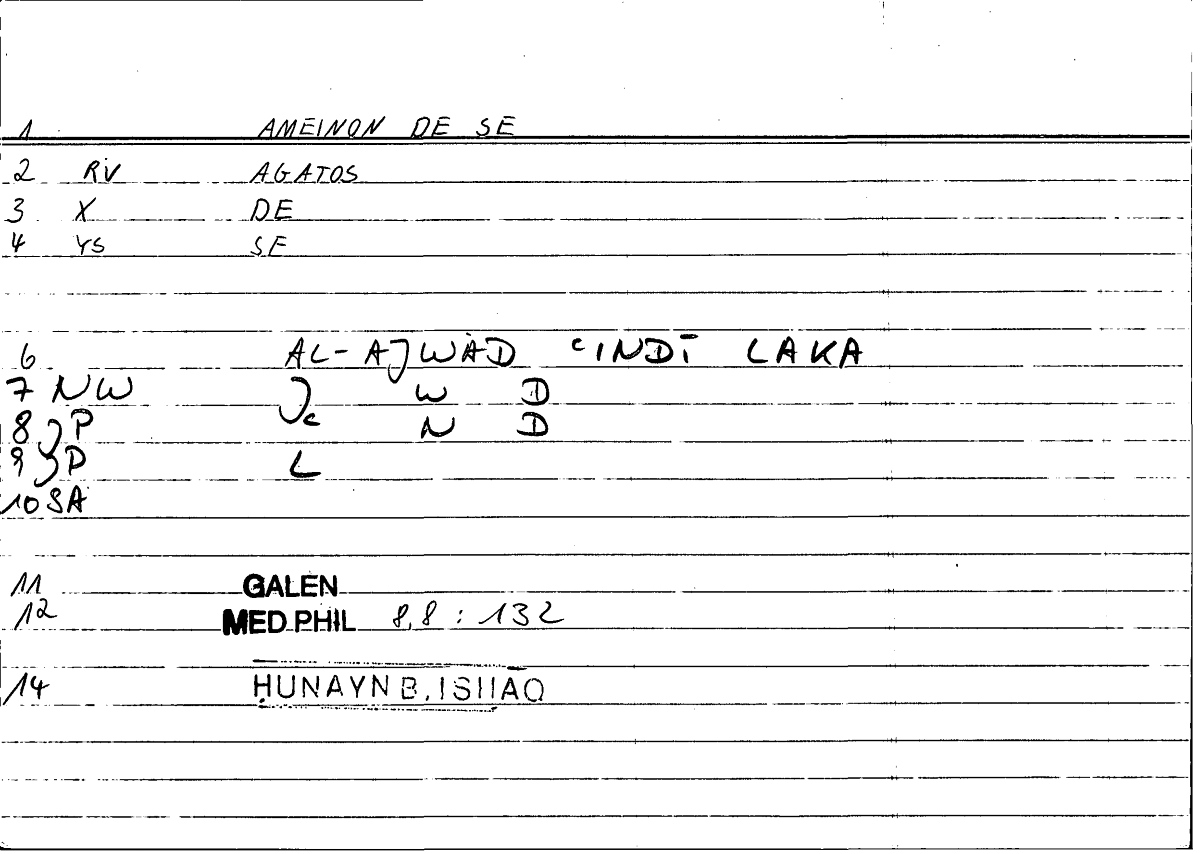 1 AMEINON DE SE
2 RV AGATOS
3 X DE
4 YS SE
6 AL-AJWAD ʿINDĪ LAKA
7 NW J W D
8 JP ʿ N D
9 JP L
10 SA
11 GALEN
12 MED PHIL 8,8 : 132
14 ḤUNAYN B. ISHAQ